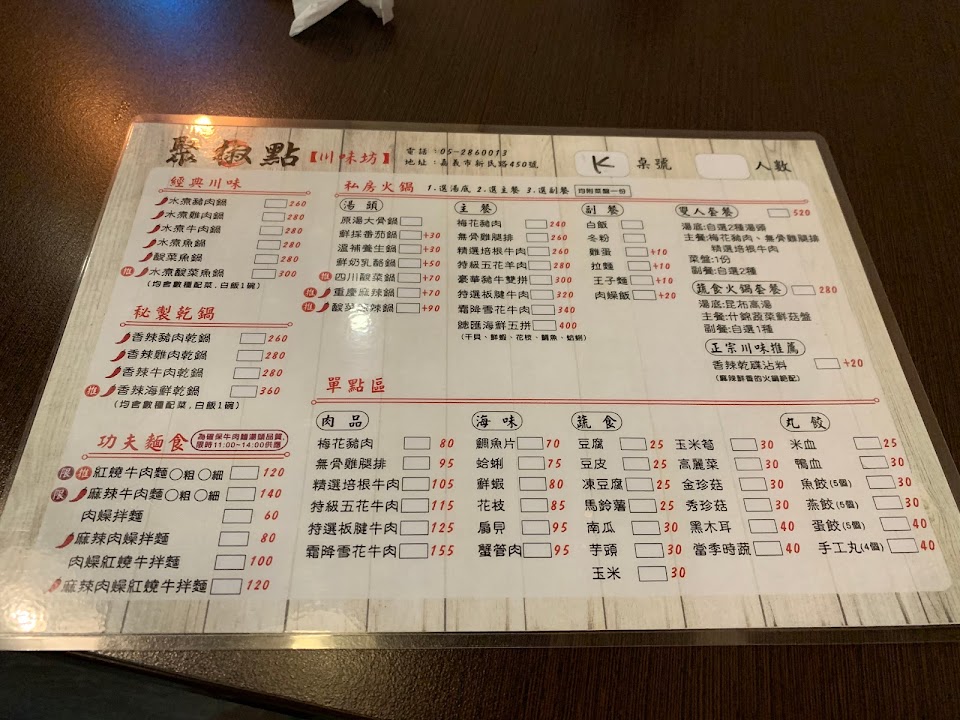 聚椒點【川味坊】
電話：05-2860013
地址：嘉義市新民路450號
K 桌號 人數
經典川味
水煮豬肉鍋 260
水煮雞肉鍋 280
水煮牛肉鍋 280
水煮魚鍋 280
酸菜魚鍋 280
推 水煮酸菜魚鍋 300
(均含數種配菜,白飯1碗)
秘製乾鍋
香辣豬肉乾鍋 260
香辣雞肉乾鍋 280
香辣牛肉乾鍋 280
推 香辣海鮮乾鍋 360
(均含數種配菜,白飯1碗)
功夫麵食 為確保牛肉麵湯頭品質,
限時11:00~14:00供應
限 推 紅燒牛肉麵 粗 細 120
限 麻辣牛肉麵 粗 細 140
肉燥拌麵 60
麻辣肉燥拌麵 80
肉燥紅燒牛拌麵 100
麻辣肉燥紅燒牛拌麵 120
私房火鍋 1.選湯底 2.選主餐 3.選副餐 均附菜盤一份
湯頭
原湯大骨鍋
鮮採番茄鍋 +30
溫補養生鍋 +30
鮮奶乳酪鍋 +50
推 四川酸菜鍋 +70
推 重慶麻辣鍋 +70
推 酸菜麻辣鍋 +90
主餐
梅花豬肉 240
無骨雞腿排 260
精選培根牛肉 260
特級五花羊肉 280
豪華豬牛雙拼 300
特選板腱牛肉 320
霜降雪花牛肉 340
聰匯海鮮五拼 400
(干貝、鮮蝦、花枝、鯛魚、蛤蜊)
副餐
白飯
冬粉
雞蛋 +10
拉麵 +10
王子麵 +10
肉燥飯 +20
雙人套餐 520
湯底:自選2種湯頭
主餐:梅花豬肉、無骨雞腿排
精選培根牛肉
菜盤:1份
副餐:自選2種
蔬食火鍋套餐 280
湯底:昆布高湯
主餐:什錦蔬菜鮮菇盤
副餐:自選1種
正宗川味推薦
香辣乾碟沾料 +20
(麻辣鮮香的火鍋絕配)
單點區
肉品
梅花豬肉 80
無骨雞腿排 95
精選培根牛肉 105
特級五花羊肉 115
特選板腱牛肉 125
霜降雪花牛肉 155
海味
鯛魚片 70
蛤蜊 75
鮮蝦 80
花枝 85
扇貝 95
蟹管肉 95
蔬食
豆腐 25
豆皮 25
凍豆腐 25
馬鈴薯 25
南瓜 30
芋頭 30
玉米 30
玉米筍 30
高麗菜 30
金珍菇 30
秀珍菇 30
黑木耳 40
當季時蔬 40
丸餃
米血 25
鴨血 30
魚餃(5個) 40
燕餃(5個) 40
蛋餃(5個) 40
手工丸(4個) 40